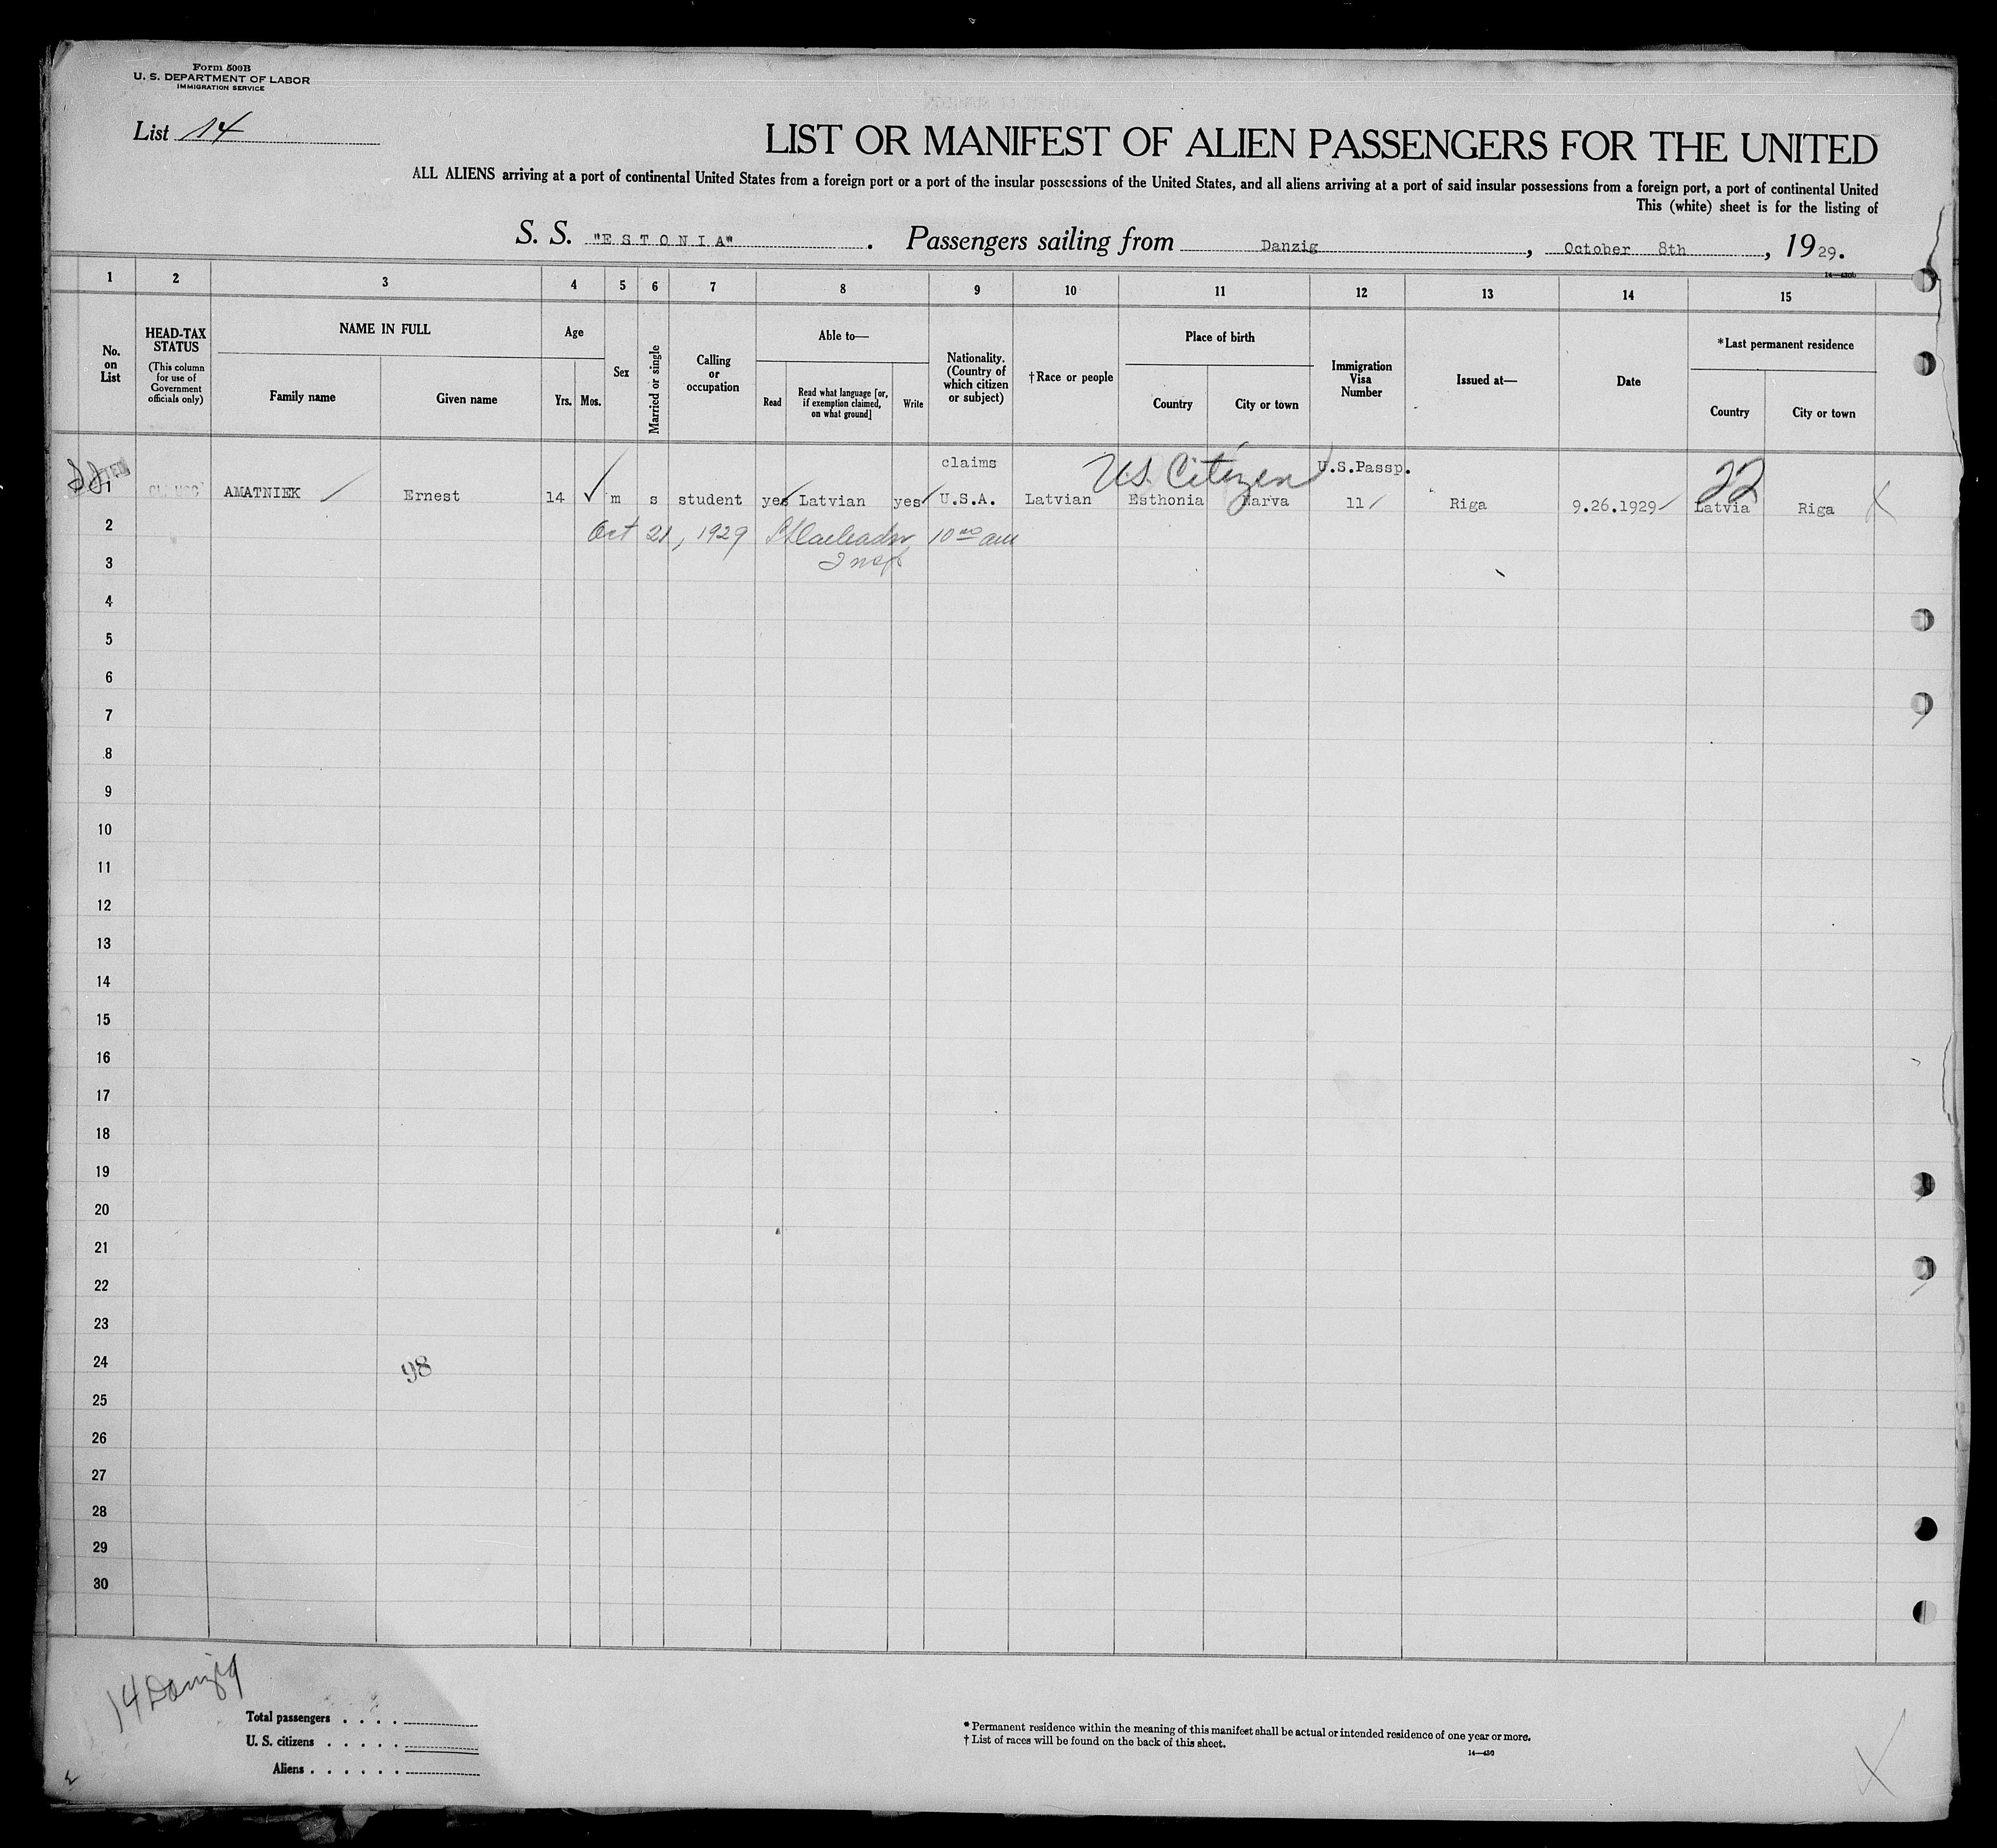 Form 500B
U. S. DEPARTMENT OF LABOR
IMMIGRATION SERVICE
List 14
LIST OR MANIFEST OF ALIEN PASSENGERS FOR THE UNITED
ALL ALIENS arriving at a port of continental United States from a foreign port or a port of the insular possessions of the United States, and all aliens arriving at a port of said insular possessions from a foreign port, a port of continental United
This (white) sheet is for the listing of
S. S. "ESTONIA". Passengers sailing from Danzig, October 8th, 1929.
1 2 3 4 5 6 7 8 9 10 11 12 13 14 15
No. on List
HEAD-TAX STATUS
(This column for use of Government officials only)
NAME IN FULL
Family name
Given name
Age
Yrs.
Mos.
Sex
Married or single
Calling or occupation
Able to—
Read
Read what language [or, if exemption claimed, on what ground]
Write
Nationality. (Country of which citizen or subject)
†Race or people
Place of birth
Country
City or town
Immigration Visa Number
Issued at—
Date
*Last permanent residence
Country
City or town
claims U.S. Citizen U.S.Passp. 22
1 AMATNIEK Ernest 14 m s student yes Latvian yes U.S.A. Latvian Esthonia Narva 11 Riga 9.26.1929 Latvia Riga
2 Oct 21, 1929 10 00 am
3 Insp
4
5
6
7
8
9
10
11
12
13
14
15
16
17
18
19
20
21
22
23
24
98
25
26
27
28
29
30
14 Danzig
Total passengers
U. S. citizens
Aliens
* Permanent residence within the meaning of this manifest shall be actual or intended residence of one year or more.
† List of races will be found on the back of this sheet.
14—430